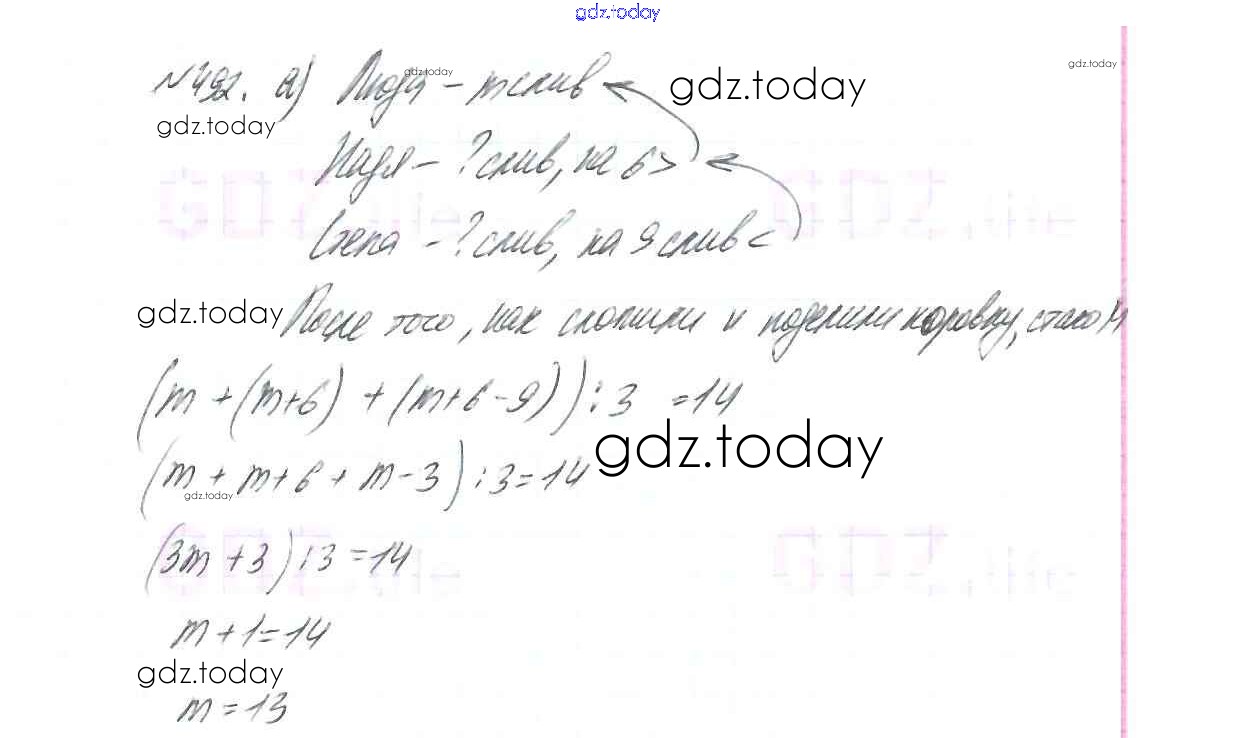 gdz.today
№492. а) Люда – m слив
gdz.today
gdz.today
gdz.today
gdz.today
Надя – ? слив, на 6 >
Гена – ? слив, на 9 слив <
gdz.today
После того, как сложили и поделили поровну, стало 14
(m + (m+6) + (m+6-9)) : 3 = 14
gdz.today
(m + m+6 + m-3) : 3 = 14
gdz.today
(3m + 3) : 3 = 14
m + 1 = 14
gdz.today
m = 13